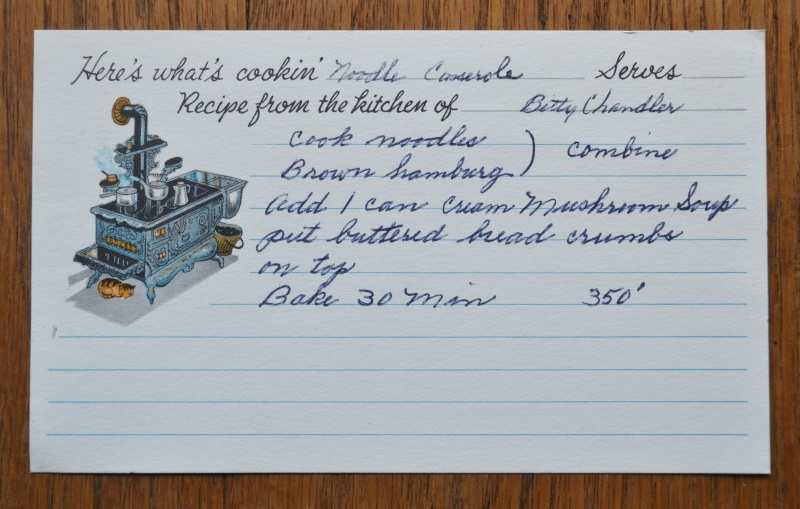 Here's what's cookin' Noodle Casserole Serves
Recipe from the kitchen of Betty Chandler
Cook noodles
Brown hamburg ) combine
Add 1 can Cream Mushroom Soup
put buttered bread crumbs
on top
Bake 30 Min 350°